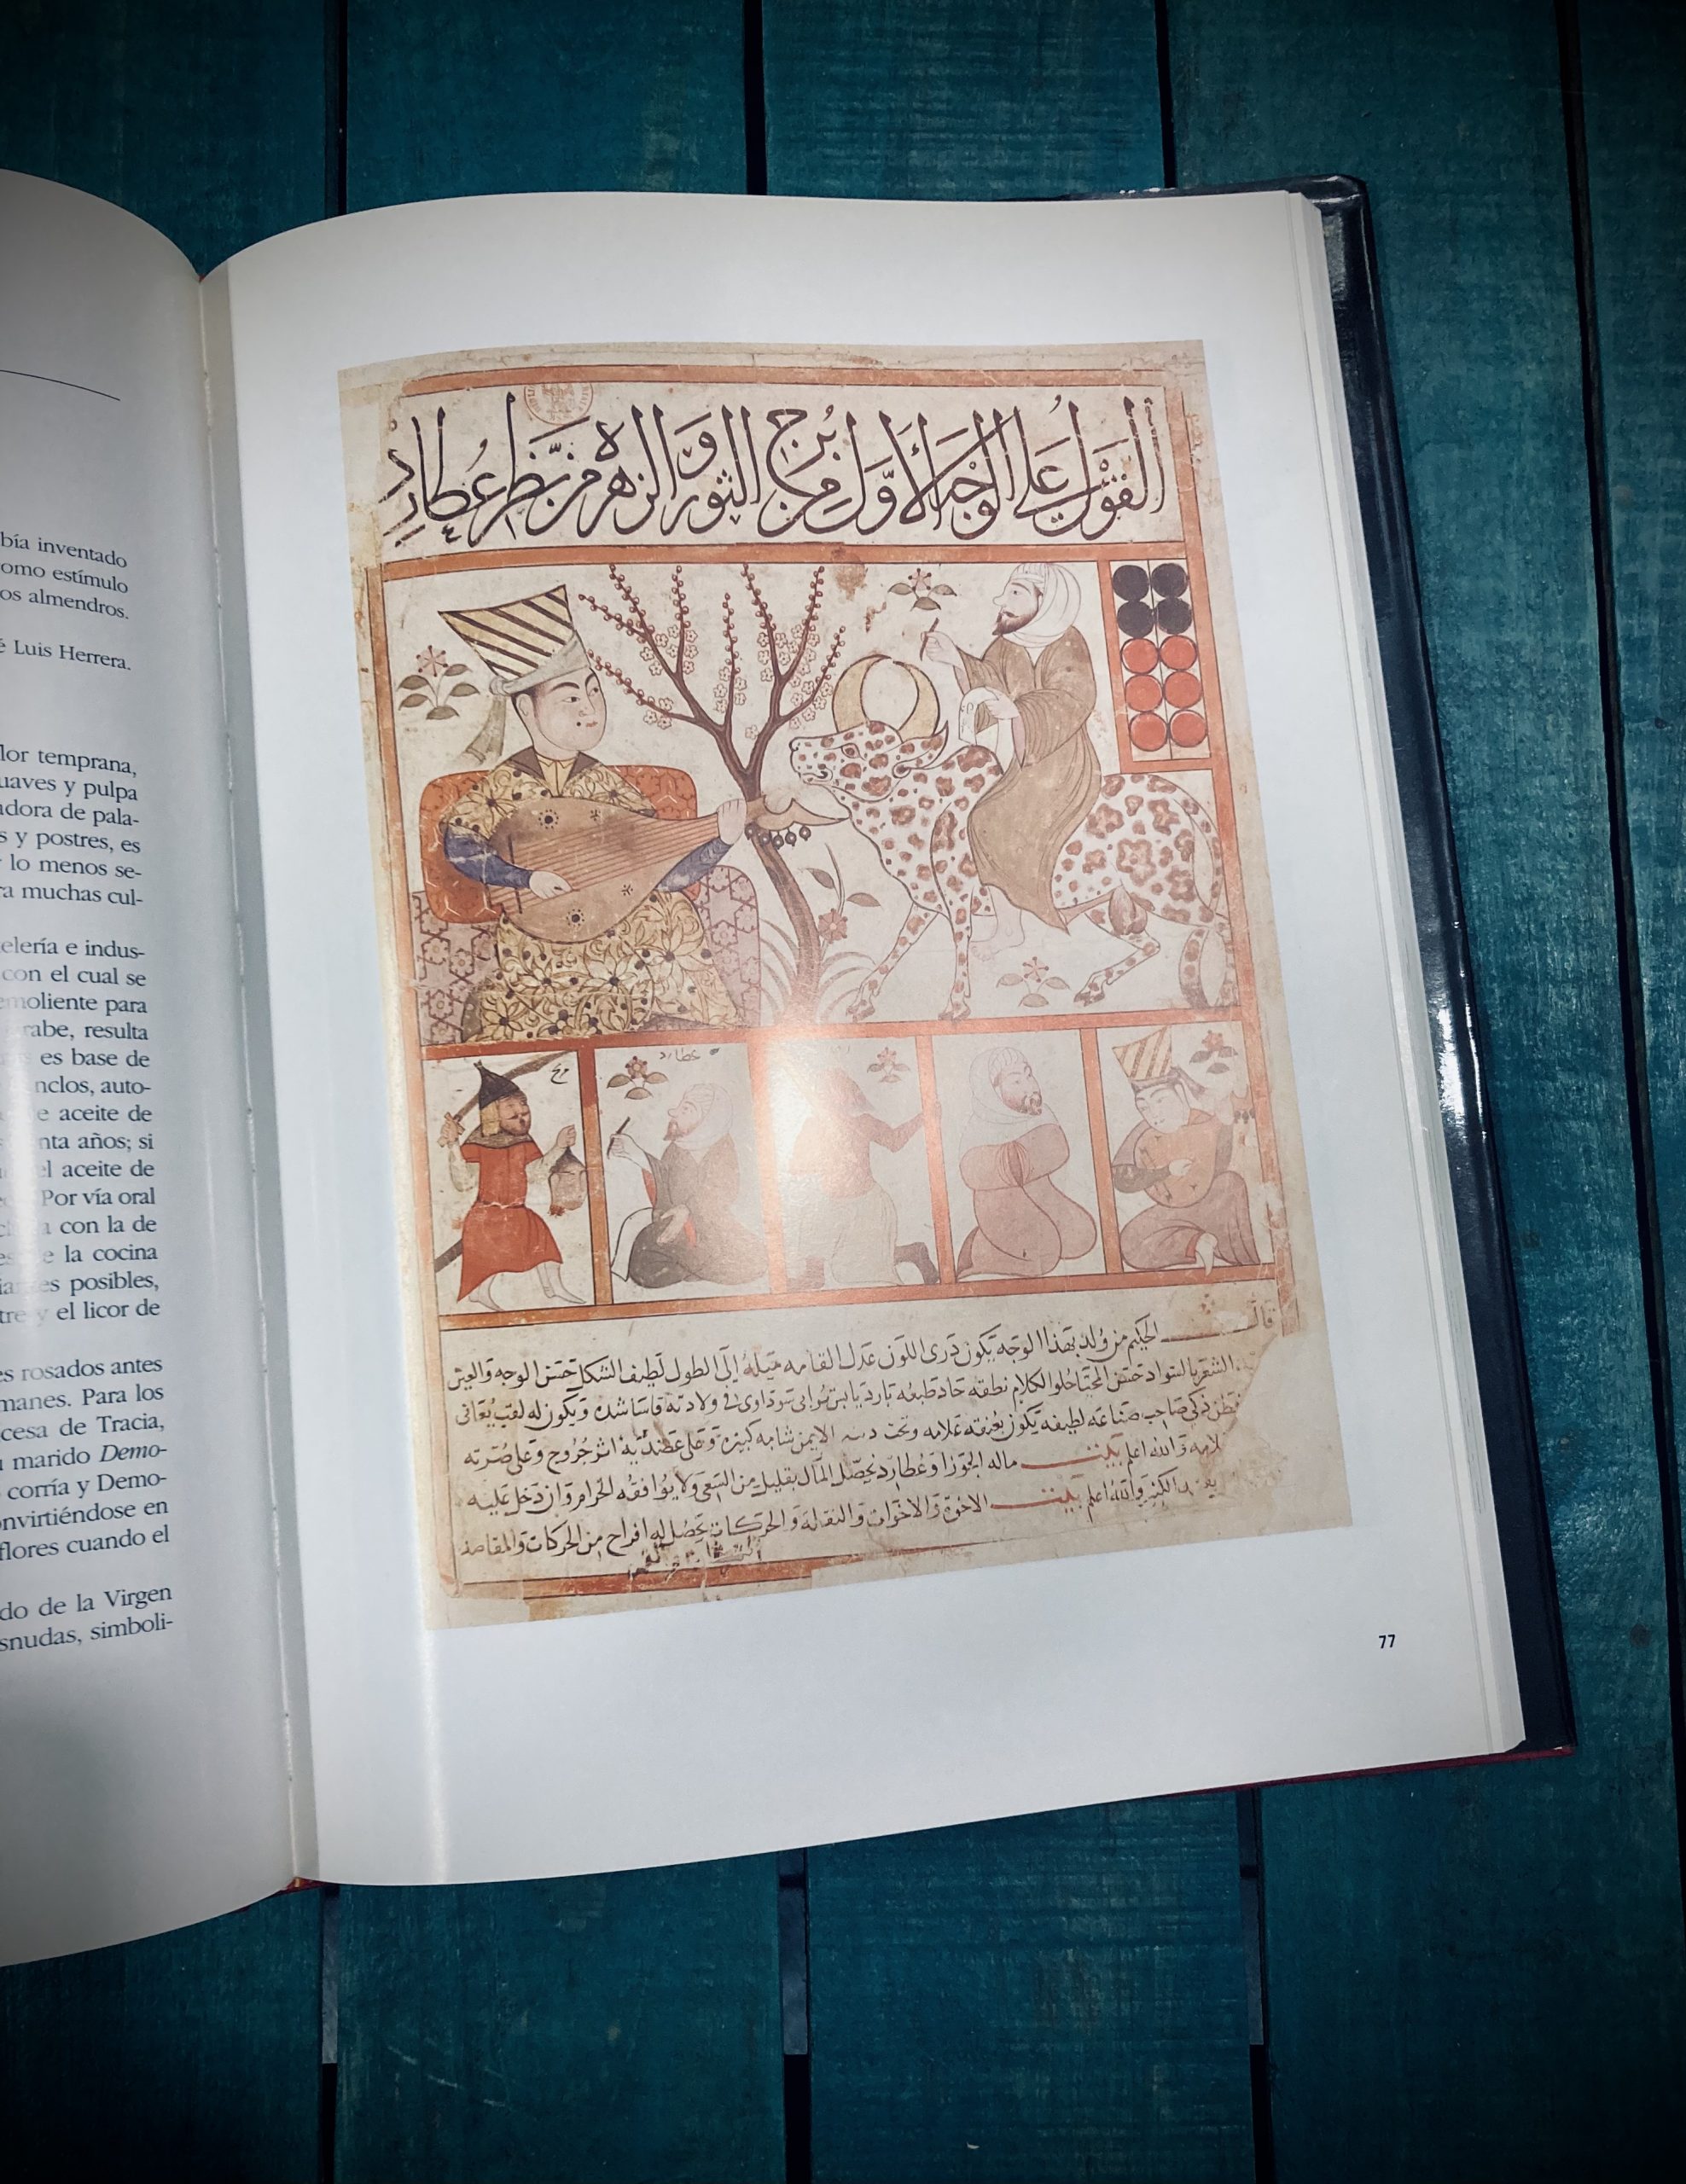 bía inventado
omo estímulo
os almendros.
é Luis Herrera.
lor temprana,
uaves y pulpa
adora de pala-
s y postres, es
lo menos se-
ra muchas cul-
elería e indus-
con el cual se
emoliente para
rabe, resulta
es base de
nclos, auto-
e aceite de
nta años; si
el aceite de
Por vía oral
con la de
e la cocina
es posibles,
tre y el licor de
es rosados antes
manes. Para los
cesa de Tracia,
marido Demo-
corría y Demo-
nvirtiéndose en
flores cuando el
do de la Virgen
snudas, simboli-
القول على الوجه الأول من برج الثور والزهرة من بنظر عطارد
مريخ
عطارد
قال الحكيم من ولد بهذا الوجه يكون درى اللون عدل القامه ميله إلى الطول لطيف الشكل حسن الوجه والعين
الشعر بالسواد حسن المحيا حلو الكلام نطقه حاد طبعه بارد يابس ترابى سوداوى فى ولادته قاسا شده ويكون له لقب يعانى
فطن ذكى صاحب صناعه لطيفه يكون بعنقه علامه وتحت الايمن شامه كبيره وعلى عضديه اثر جروح وعلى صرته
والله اعلم بيت ماله الجوزا وعطارد يحصل المال بقليل من السعى ولا يوافقه الحرام وان دخل عليه
والله اعلم بيت الاخوة والاخوات والنقله والحركات يحصل له افراح من الحركات والمقاصد
77